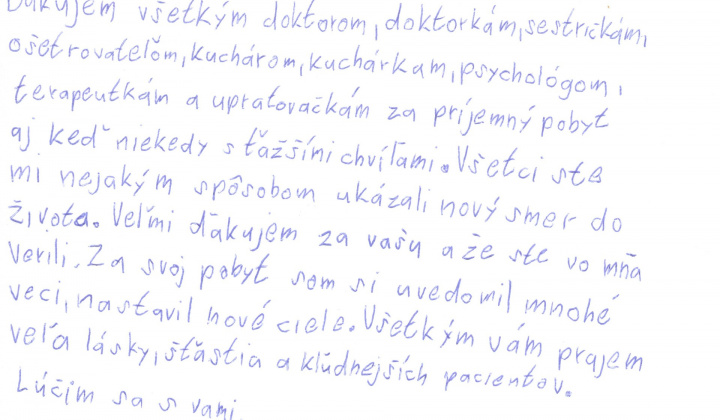 Ďakujem všetkým doktorom, doktorkám, sestričkám,
ošetrovateľom, kuchárom, kuchárkam, psychológom,
terapeutkám a upratovačkám za príjemný pobyt
aj keď niekedy s ťažšími chvíľami. Všetci ste
mi nejakým spôsobom ukázali nový smer do
života. Veľmi ďakujem za vašu a že ste vo mňa
Verili. Za svoj pobyt som si uvedomil mnohé
veci, nastavil nové ciele. Všetkým vám prajem
veľa lásky, šťastia a kľudnejších pacientov.
Lúčim sa s vami.